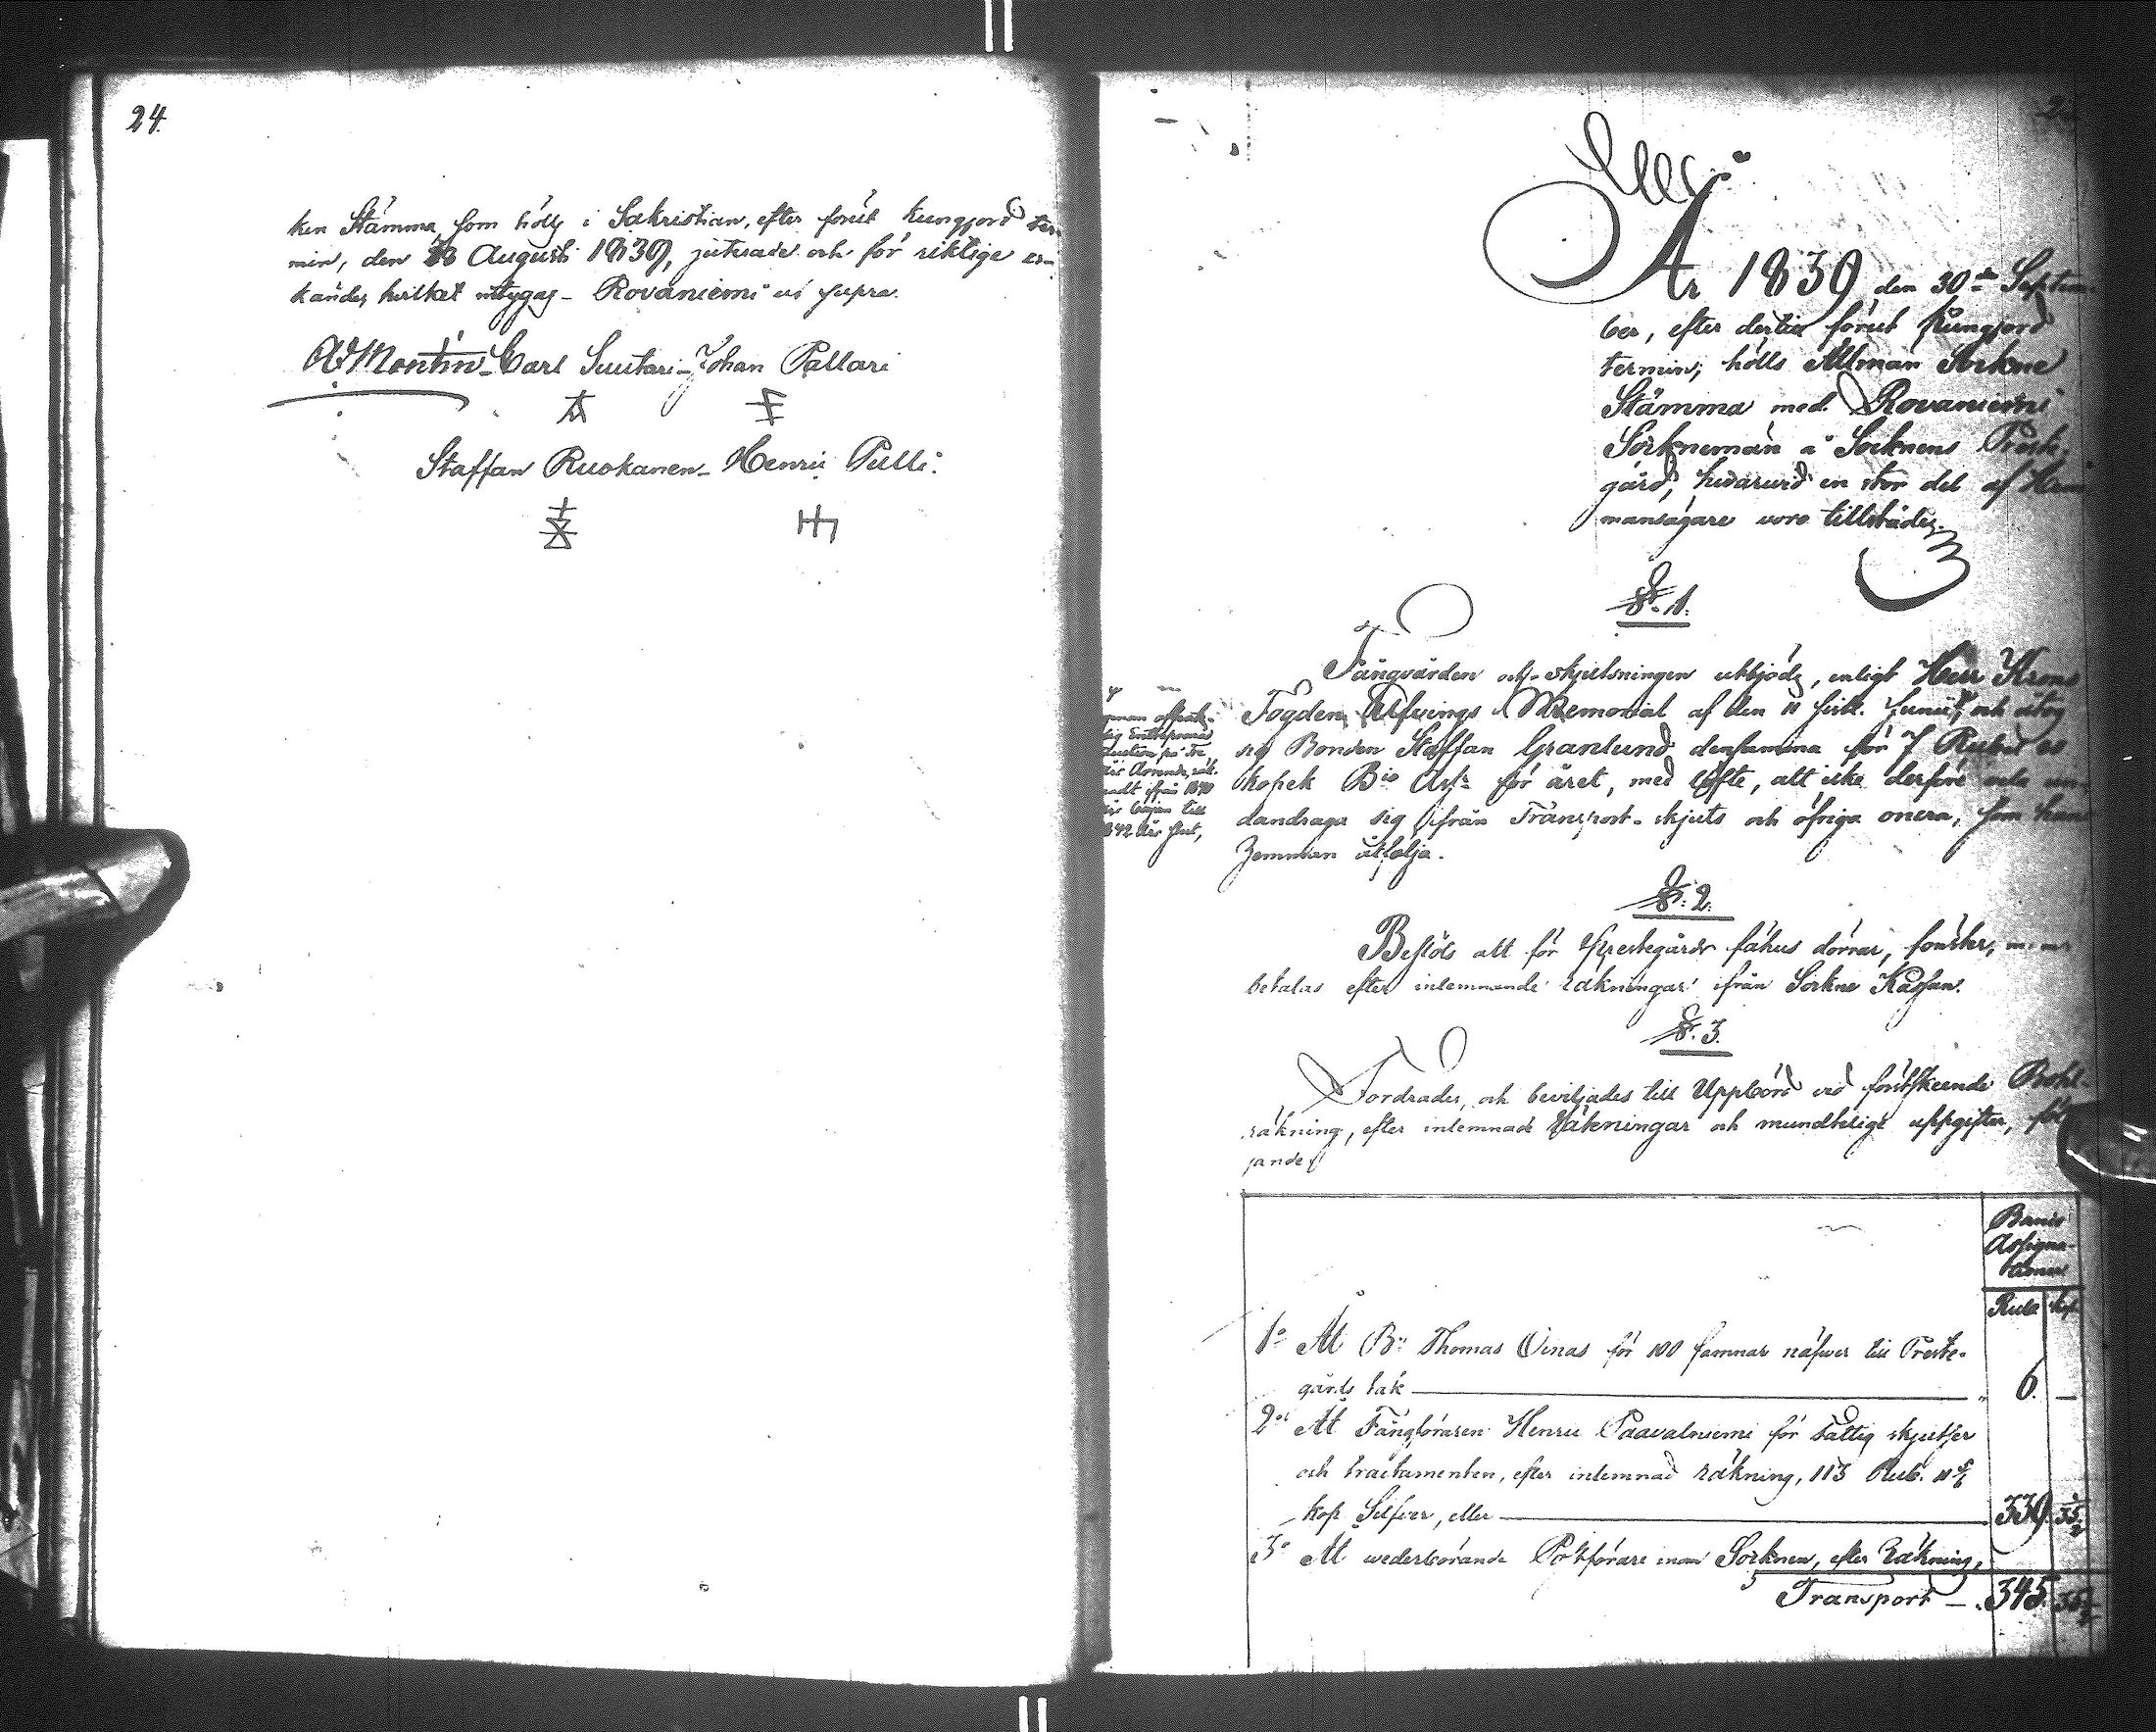 24.
ken Stämma, som hölls i Sakristian, efter förut kungjord ter-
min, den 18 Augusti 1839, justerade och för riktige er-
kändes, hvilket intygas – Rovaniemi ut supra.
Carl Suutari – Johan Pallari
Staffan Ruokanen – Henric Pulli.
År 1839 den 30de Septem-
ber, efter dertill förut kungjord
termin, hölls Allmän Sockne
Stämma med Rovaniemi
Socknemän å Socknens Preste-
gård, hvarvid en stor del af Hem-
mansägare voro tillstädes.
§. 1.
Fångvården och -skjutsningen utbjöds, enligt Herr Krono
Fogden Memorial af den 11 sistl. Junii, och åtog
sig Bonden Staffan Granlund densamma för 7 Rubel
kopek Bco Ass. för året, med löfte, att icke derföre un-
dandraga sig ifrån Transport-skjuts och öfriga onera, som hans
hemman åtfölja.
Entreprenad
från 1840
års början till
1842 års slut,
§. 2.
Beslöts att för Prestegårds fähus dörrar, fönster, m. m.
betalas efter inlemnande räkningar ifrån Sockne Kassan.
§. 3.
Fordrades, och beviljades till Uppbörd vid
räkning, efter inlemnade Räkningar och mundtelige uppgifter, föl-
jande:
Banco
Assigna-
tioner
Rub. kop.
1o At Bn Thomas Oinas för 100 famnar näfver till Preste-
gårds tak — 6. —
2o At Fångföraren Henric Paavalniemi för skjutser
och tractamenten, efter inlemnad räkning, 113 Rub.
kop Silfver, eller — 339.
3o At wederbörande Postförare inom Socknen, efter Räkning,
Transport — 345.